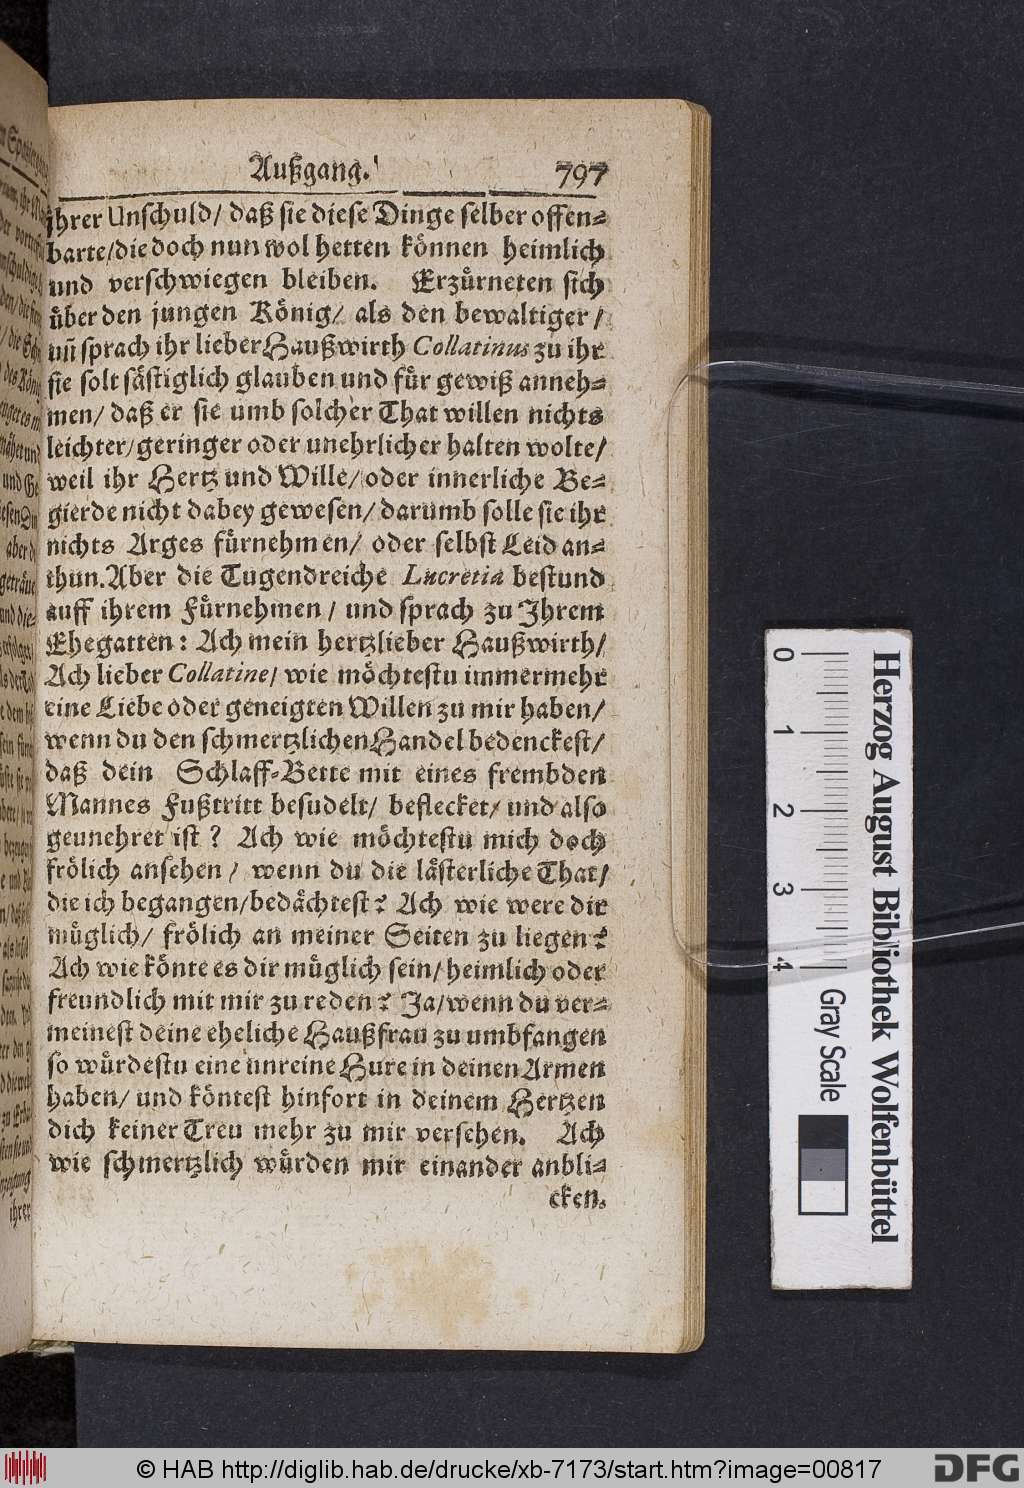 Außgang. 797
ihrer Unschuld/ daß sie diese Dinge selber offen-
barte/die doch nun wol hetten können heimlich
und verschwiegen bleiben. Erzürneten sich
über den jungen König/ als den bewaltiger/
uñ sprach ihr lieber Haußwirth Collatinus zu ihr
sie solt sästiglich glauben und für gewiß anneh-
men/ daß er sie umb solcher That willen nichts
leichter/geringer oder unehrlicher halten wolte/
weil ihr Hertz und Wille/ oder innerliche Be-
gierde nicht dabey gewesen/ darumb solle sie ihr
nichts Arges fürnehmen/ oder selbst Leid an-
thun. Aber die Tugendreiche Lucretia bestund
auff ihrem Fürnehmen/ und sprach zu Ihrem
Ehegatten: Ach mein hertzlieber Haußwirth/
Ach lieber Collatine/ wie möchtestu immermehr
eine Liebe oder geneigten Willen zu mir haben/
wenn du den schmertzlichen Handel bedenckest/
daß dein Schlaff-Bette mit eines frembden
Mannes Fußtritt besudelt/ beflecket/ und also
geunehret ist? Ach wie möchtestu mich doch
frölich ansehen/ wenn du die lästerliche That/
die ich begangen/bedächtest? Ach wie were dir
müglich/ frölich an meiner Seiten zu liegen?
Ach wie könte es dir müglich sein/ heimlich oder
freundlich mit mir zu reden? Ja/wenn du ver-
meinest deine eheliche Haußfrau zu umbfangen
so würdestu eine unreine Hure in deinen Armen
haben/ und köntest hinfort in deinem Hertzen
dich keiner Treu mehr zu mir versehen. Ach
wie schmertzlich würden mir einander anbli-
cken.
ihrer
0 1 2 3 4
Herzog August Bibliothek Wolfenbüttel
Gray Scale
© HAB http://diglib.hab.de/drucke/xb-7173/start.htm?image=00817
DFG